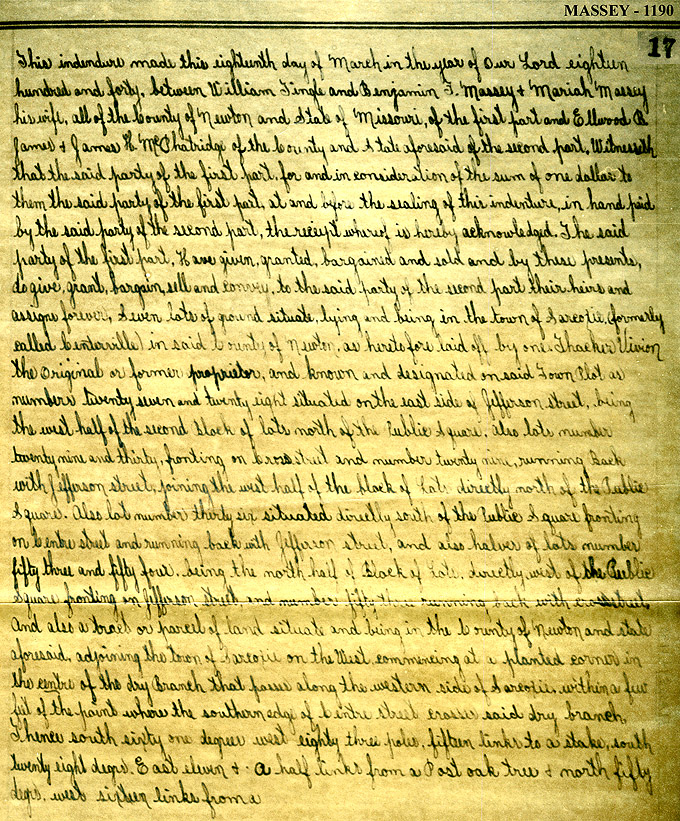 MASSEY - 1190
17
This indenture made this eighteenth day of March in the year of Our Lord eighteen
hundred and forty, between William Tingle and Benjamin F. Massey & Mariah Massey
his wife, all of the County of Newton and State of Missouri, of the first part and Ellwood B.
James & James H. McPhatridge of the County and State aforesaid of the second part, Witnesseth
that the said party of the first part, for and in consideration of the sum of one dollar to
them the said party of the first part, at and before the sealing of this indenture, in hand paid
by the said party of the second part, the receipt whereof is hereby acknowledged. The said
party of the first part, Have given, granted, bargained and sold and by these presents,
do give, grant, bargain, sell and convey, to the said party of the second part their heirs and
assigns forever, Seven lots of ground situate, lying and being in the town of Sarcoxie, (formerly
called Centerville) in said County of Newton, as heretofore laid off by one Thacker Vivion
the Original or former proprietor, and known and designated on said Town Plot as
numbers twenty seven and twenty eight situated on the east side of Jefferson street, being
the west half of the second block of lots north of the Public Square. Also lots number
twenty nine and thirty, fronting on Cross street and number twenty nine, running Back
with Jefferson street, joining the west half of the block of Lots directly north of the Public
Square. Also lot number thirty six situated directly south of the Public Square fronting
on Centre street and running back with Jefferson street, and also halves of lots number
fifty three and fifty four. being the north half of Block of Lots, directly west of the Public
Square fronting on Jefferson Street, and number fifty three running back with cross street
And also a tract or parcel of land situate and being in the County of Newton and state
aforesaid, adjoining the town of Sarcoxie on the West, commencing at a planted corner in
the centre of the dry Branch that passes along the western side of Sarcoxie, within a few
feet of the point where the southern edge of Centre street crosses said dry branch,
Thence south sixty one degrees west eighty three poles, fifteen links to a stake, south
twenty eight degrs. East eleven & a half links from a Post oak tree & north fifty
degrs. west sixteen links from a